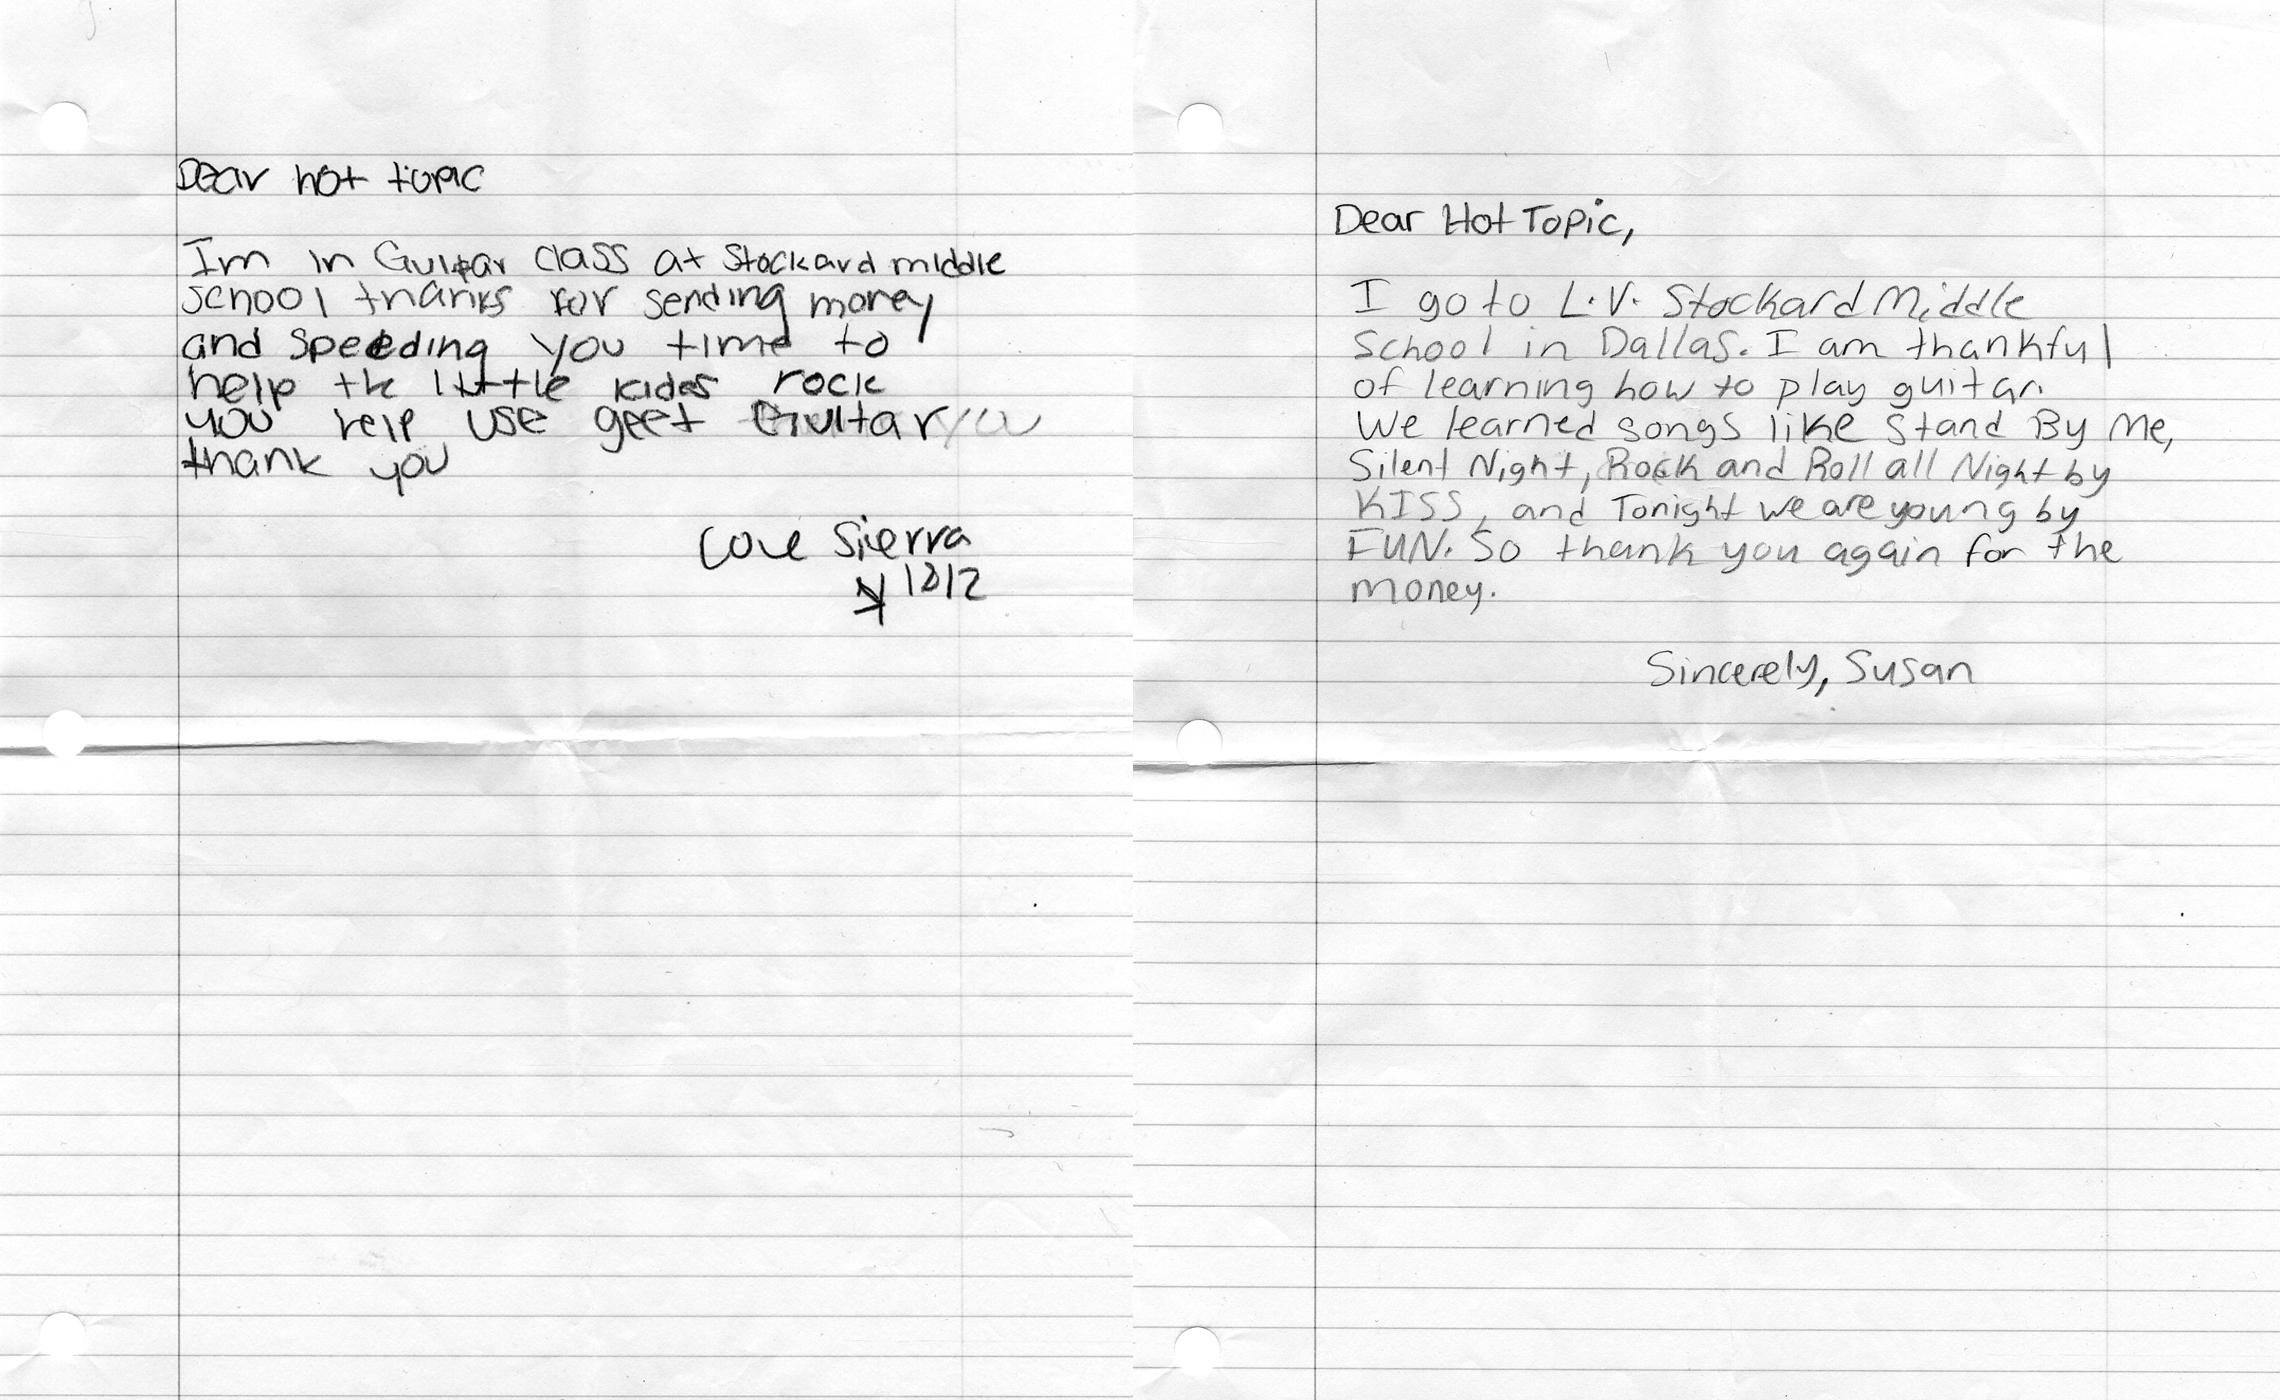 Dear hot topic
Im in Guitar class at Stockard middle
school thanks for sending money
and speeding you time to
help the little kides rock
you help use geet Guitar
thank you
Love Sierra
1812
Dear Hot Topic,
I go to L.V. Stockard Middle
School in Dallas. I am thankful
of learning how to play guitar.
We learned songs like Stand By Me,
Silent Night, Rock and Roll all Night by
KISS, and Tonight we are young by
FUN. So thank you again for the
money.
Sincerely, Susan